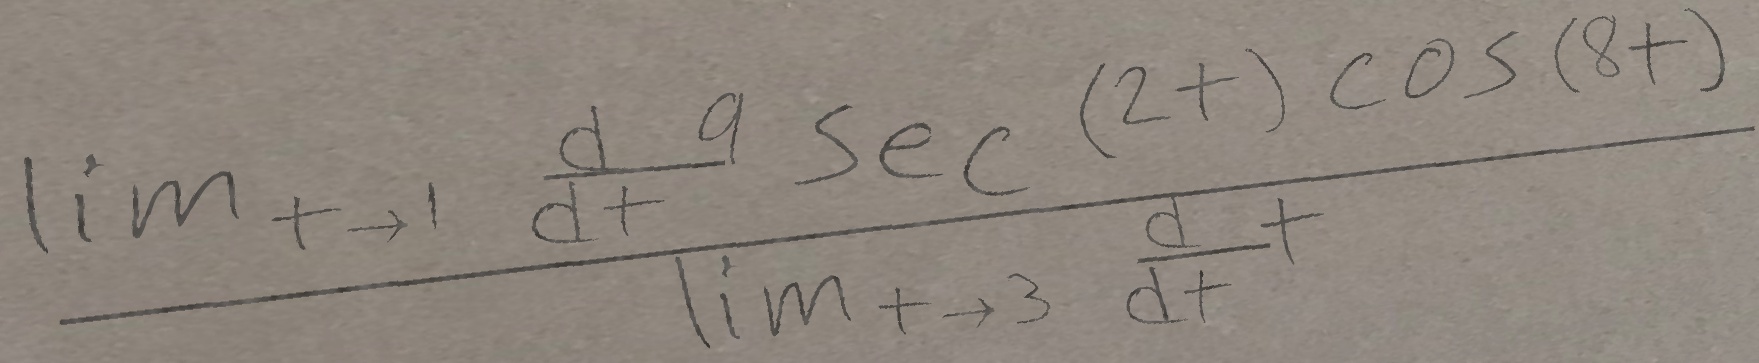 \frac{\lim_{t \to 1} \frac{d}{dt} 9 \sec(2t) \cos(8t)}{\lim_{t \to 3} \frac{d}{dt} t}